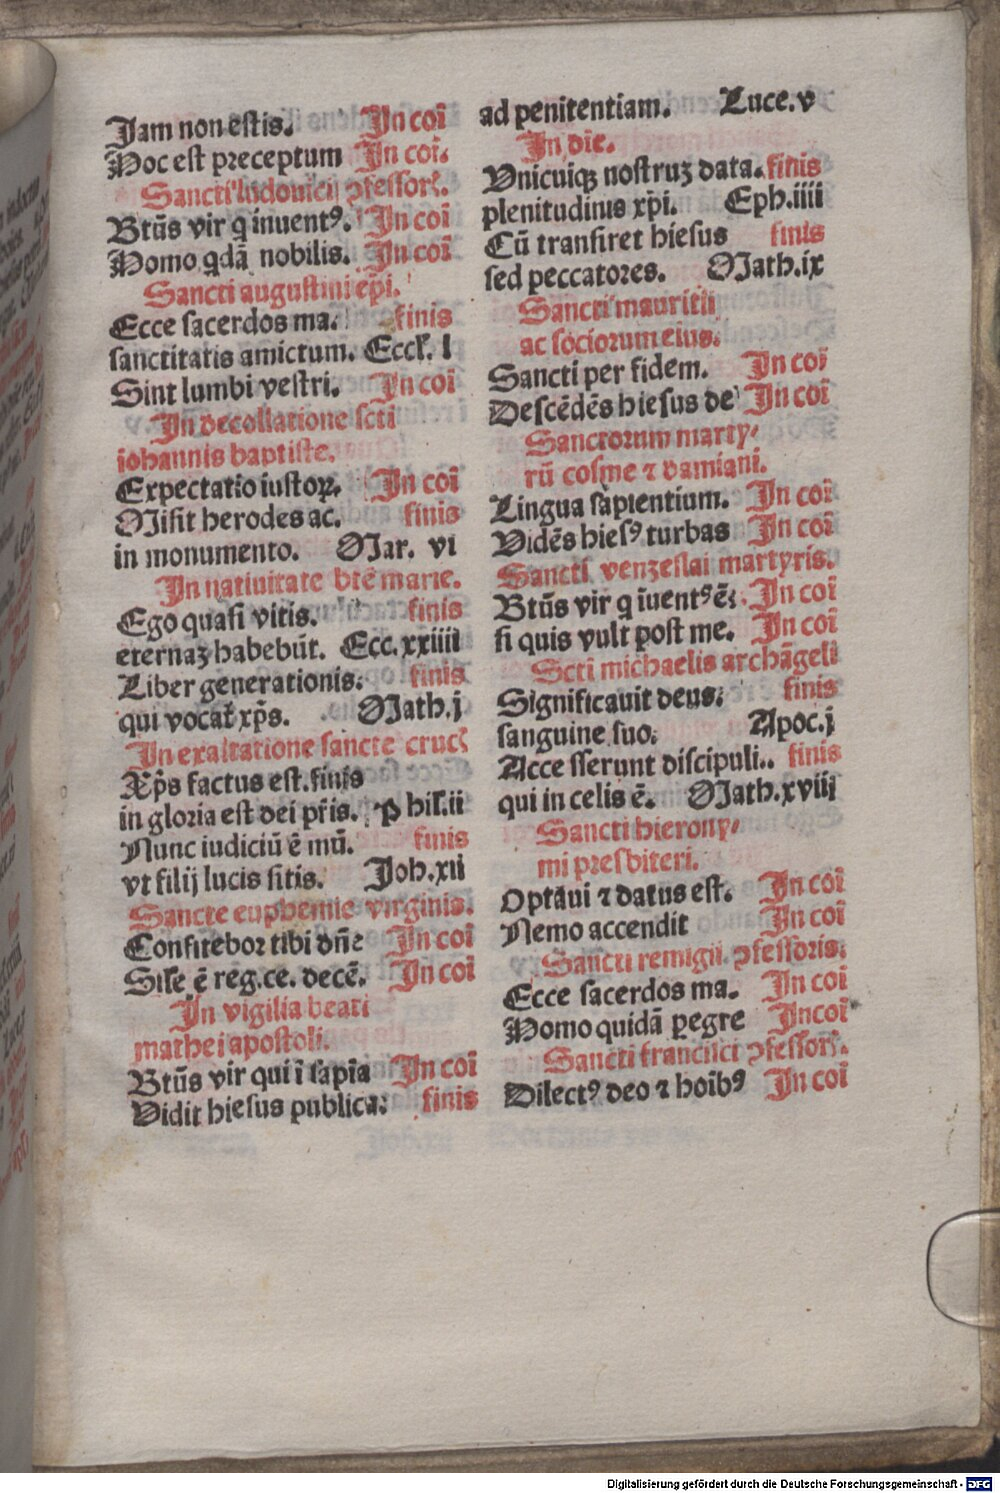 Jam non estis. In coī
Hoc est preceptum In coī.
Sancti ludouici ꝯfessorꝭ.
Btūs vir q̄ inuentꝰ. In coī
Homo qdā nobilis. In coī
Sancti augustini ep̄i.
Ecce sacerdos ma. finis
sanctitatis amictum. Eccl'. l
Sint lumbi vestri. In coī
In decollatione scti
iohannis baptiste.
Expectatio iustoꝝ. In coī
Misit herodes ac. finis
in monumento. Mar. vi
In natiuitate btē marie.
Ego quasi vitis. finis
eternaꝫ habebūt. Ecc. xxiiii
Liber generationis. finis
qui vocat̄ xp̄s. Math.j
In exaltatione sancte crucꝭ
Xp̄s factus est. finis
in gloria est dei pr̄is. Phil'.ii
Nunc iudiciū ē mū. finis
vt filij lucis sitis. Joh.xii
Sancte euphemie virginis.
Confitebor tibi dn̄e In coī
Sil'e ē reg.ce. decē. In coī
In vigilia beati
mathei apostoli.
Btūs vir qui ī sapīa In coī
Vidit hiesus publica. finis
ad penitentiam. Luce.v
In die.
Vnicuiqꝫ nostruꝫ data. finis
plenitudinis xp̄i. Eph.iiii
Cū transiret hiesus finis
sed peccatores. Math.ix
Sancti mauritii
ac sociorum eius.
Sancti per fidem. In coī
Descēdēs hiesus de In coī
Sanctorum marty⸗
rū cosme ⁊ damiani.
Lingua sapientium. In coī
Vidēs hiesꝰ turbas In coī
Sancti venzeslai martyris.
Btūs vir q̄ īuentꝰ ē. In coī
si quis vult post me. In coī
Scti michaelis archāgeli
Significauit deus. finis
sanguine suo. Apoc.j
Accesserunt discipuli.. finis
qui in celis ē. Math.xviii
Sancti hierony⸗
mi presbiteri.
Optaui ⁊ datus est. In coī
Nemo accendit In coī
Sancti remigii. ꝯfessoris.
Ecce sacerdos ma. In coī
Homo quidā ꝑegre In coī
Sancti francisci ꝯfessorꝭ.
Dilectꝰ deo ⁊ hoībꝰ In coī
Digitalisierung gefördert durch die Deutsche Forschungsgemeinschaft - DFG